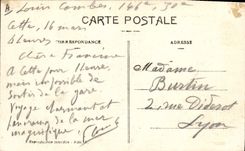 Louis Combes, 166e, 30e
CARTE POSTALE
Cette, 16 mars
8 heures
CORRESPONDANCE
ADRESSE
Chère Francine
A Cette pour 1 heure,
mais impossible de
sortir de la gare
Voyage charmant et
panorama de la mer
magnifique
Madame
Burtin
2, rue Diderot
Lyon